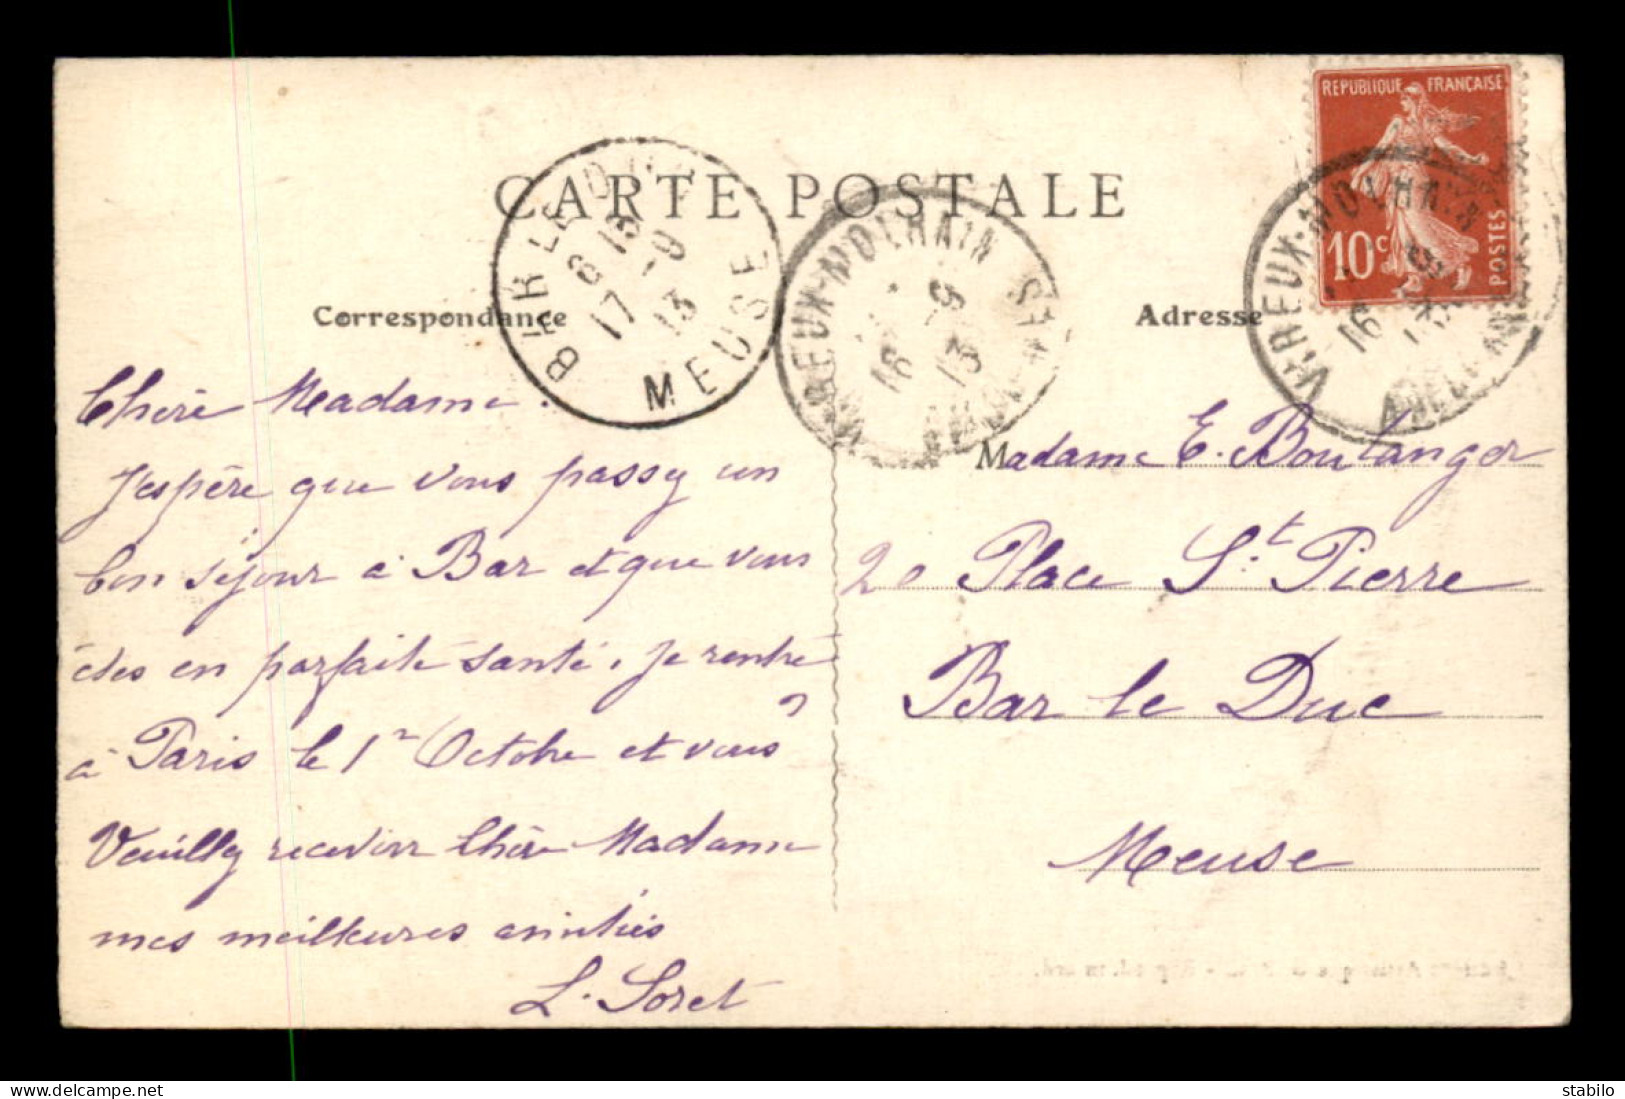 REPUBLIQUE FRANÇAISE
10c POSTES
CARTE POSTALE
BAR LE DUC
8 15
17 -9
13
MEUSE
VIREUX-MOLHAIN
16 -9
13
VIREUX-MOLHAIN
16 -9
13
Correspondance
Adresse
Chère Madame.
J'espère que vous passez un
bon séjour à Bar et que vous
êtes en parfaite santé, je rentre
à Paris le 1r Octobre et vous
Veuillez recevoir Chère Madame
mes meilleures amitiés
L. Soret
Madame E. Boulanger
20 Place St. Pierre
Bar le Duc
Meuse
stabilo